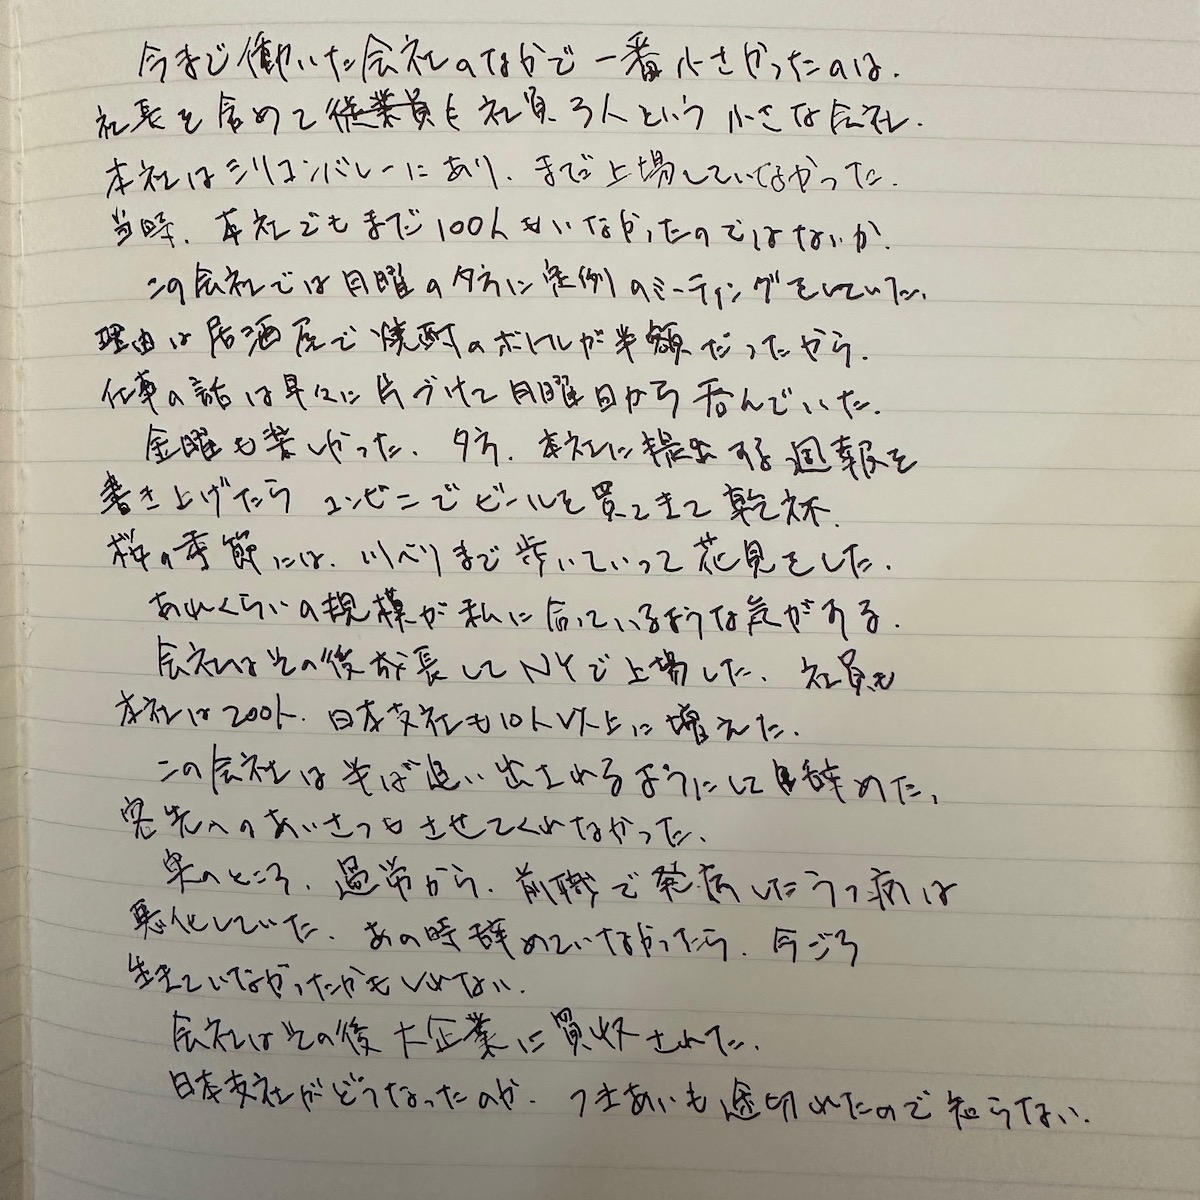 今まで働いた会社のなかで一番小さかったのは、
社長を含めて従業員も社員3人という小さな会社。
本社はシリコンバレーにあり、まだ上場していなかった。
当時、本社でもまだ100人もいなかったのではないか。
この会社では月曜の夕方に定例のミーティングをしていた。
理由は居酒屋で焼酎のボトルが半額だったから。
仕事の話は早々に片づけて月曜日から呑んでいた。
金曜も楽しかった。夕方、本社に提出する週報を
書き上げたらコンビニでビールを買ってきて乾杯。
桜の季節には、川べりまで歩いていって花見をした。
あれくらいの規模が私に合っているような気がする。
会社はその後成長してNYで上場した。社員も
本社は200人、日本支社も10人以上に増えた。
この会社は半ば追い出されるようにして辞めた。
客先へのあいさつもさせてくれなかった。
実のところ、過労から、前職で発病したうつ病は
悪化していた。あの時辞めていなかったら、今ごろ
生きていなかったかもしれない。
会社はその後大企業に買収された。
日本支社がどうなったのか、つきあいも途切れたので知らない。